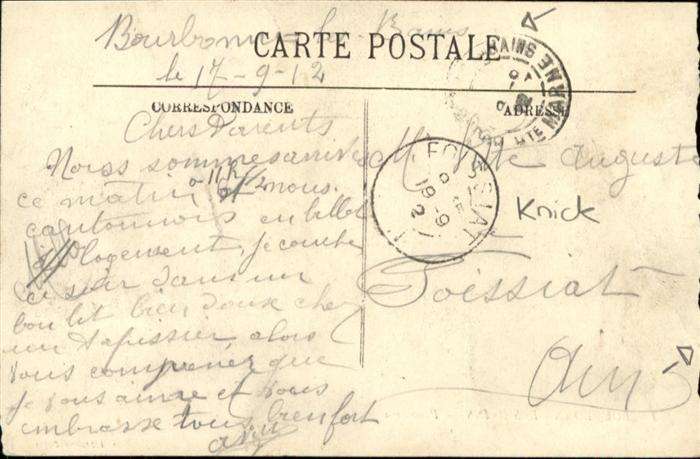 Bourbonne les Bains
CARTE POSTALE
le 17-9-12
CORRESPONDANCE
ADRESSE
BAINS
HTE MARNE
Chers Parents
Nous somme arrivés
ce matin a 11 h 1/2 nous
cantonnons en billet
de logement je couche
ce soir dans un
bon lit bien doux chez
un tapissier alors
vous comprenez que
je vous aime et vous
embrasse tous bien fort
M. Auguste
FOISSIAT
19-9
12
Knick
Foissiat
Ain